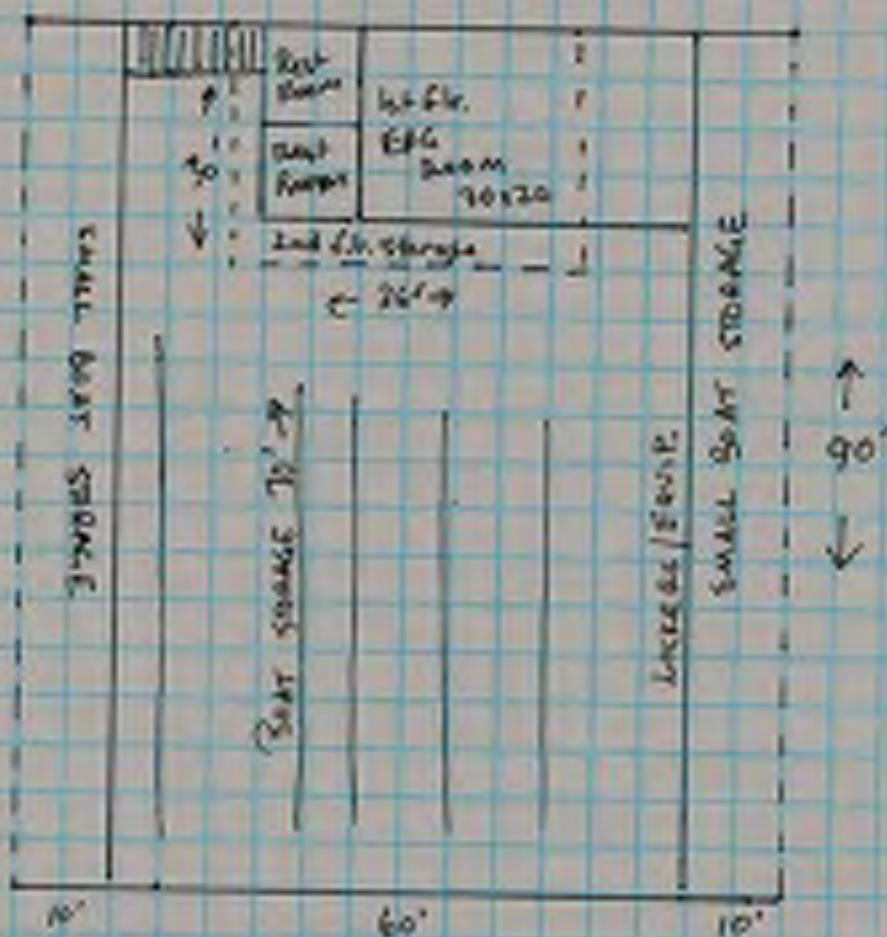 Rest
Room
1st flr.
ERG
Room
Rest
Room
30
2nd flr. storage
← 36' →
SMALL BOAT STORAGE
BOAT STORAGE
LOCKERS / EQUIP.
SMALL BOAT STORAGE
90'
10'
60'
10'